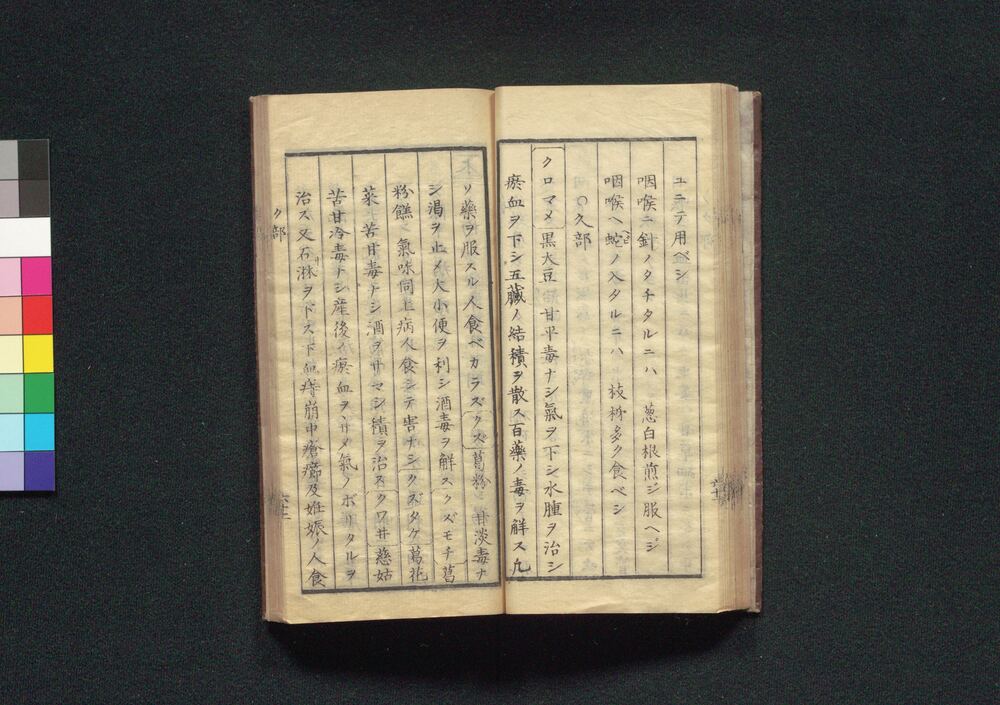 ユニテ用ベシ
咽喉ニ針ノタチタルニハ 葱白根煎ジ服ヘジ
咽喉ヘ蛇ノ入タルニハ 枝柹多ク食ベシ
○久部
クロマメ 黒大豆 甘平毒ナシ氣ヲ下シ水腫ヲ治シ
瘀血ヲ下シ五臓ノ結積ヲ散ス百藥ノ毒ヲ解ス凢
ソ藥ヲ服スル人食ベカラズクズ葛粉 甘淡毒ナ
シ渇ヲ止メ大小便ヲ利シ酒毒ヲ解スクズモチ葛
粉餻 氣味同上病人食シテ害ナシクズタケ葛花
菜 苦甘毒ナシ酒ヲサマシ積ヲ治スクワ井慈姑
苦甘冷毒ナシ産後ノ瘀血ヲヽサメ氣ノボリタルヲ
治ス又石淋ヲ下ス下血痔崩中瘡癤及姙娠ノ人食
ク部
六十二